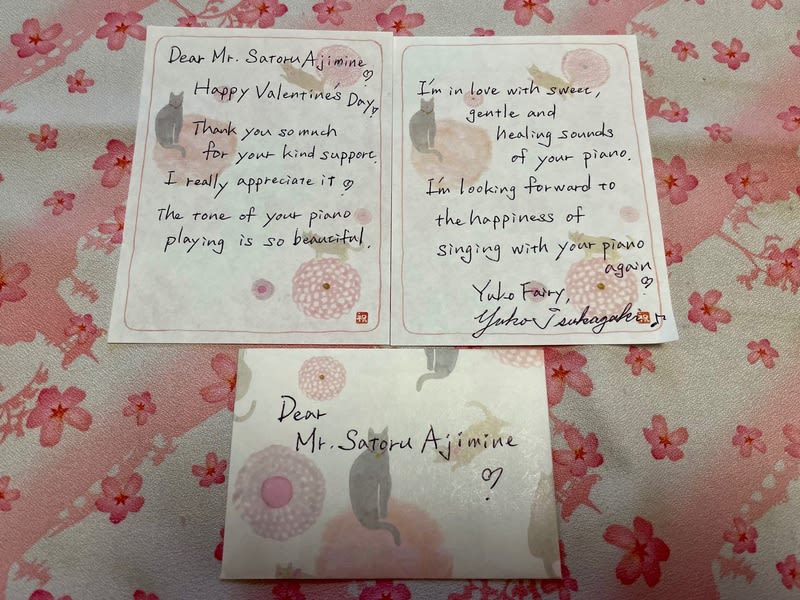 Dear Mr. Satoru Ajimine
Happy Valentine's Day
Thank you so much
for your kind support.
I really appreciate it
The tone of your piano
playing is so beautiful.
I'm in love with sweet,
gentle and
healing sounds
of your piano.
I'm looking forward to
the happiness of
singing with your piano
again
Yuko Fairy,
Yuko Tsukagaki
Dear
Mr. Satoru Ajimine